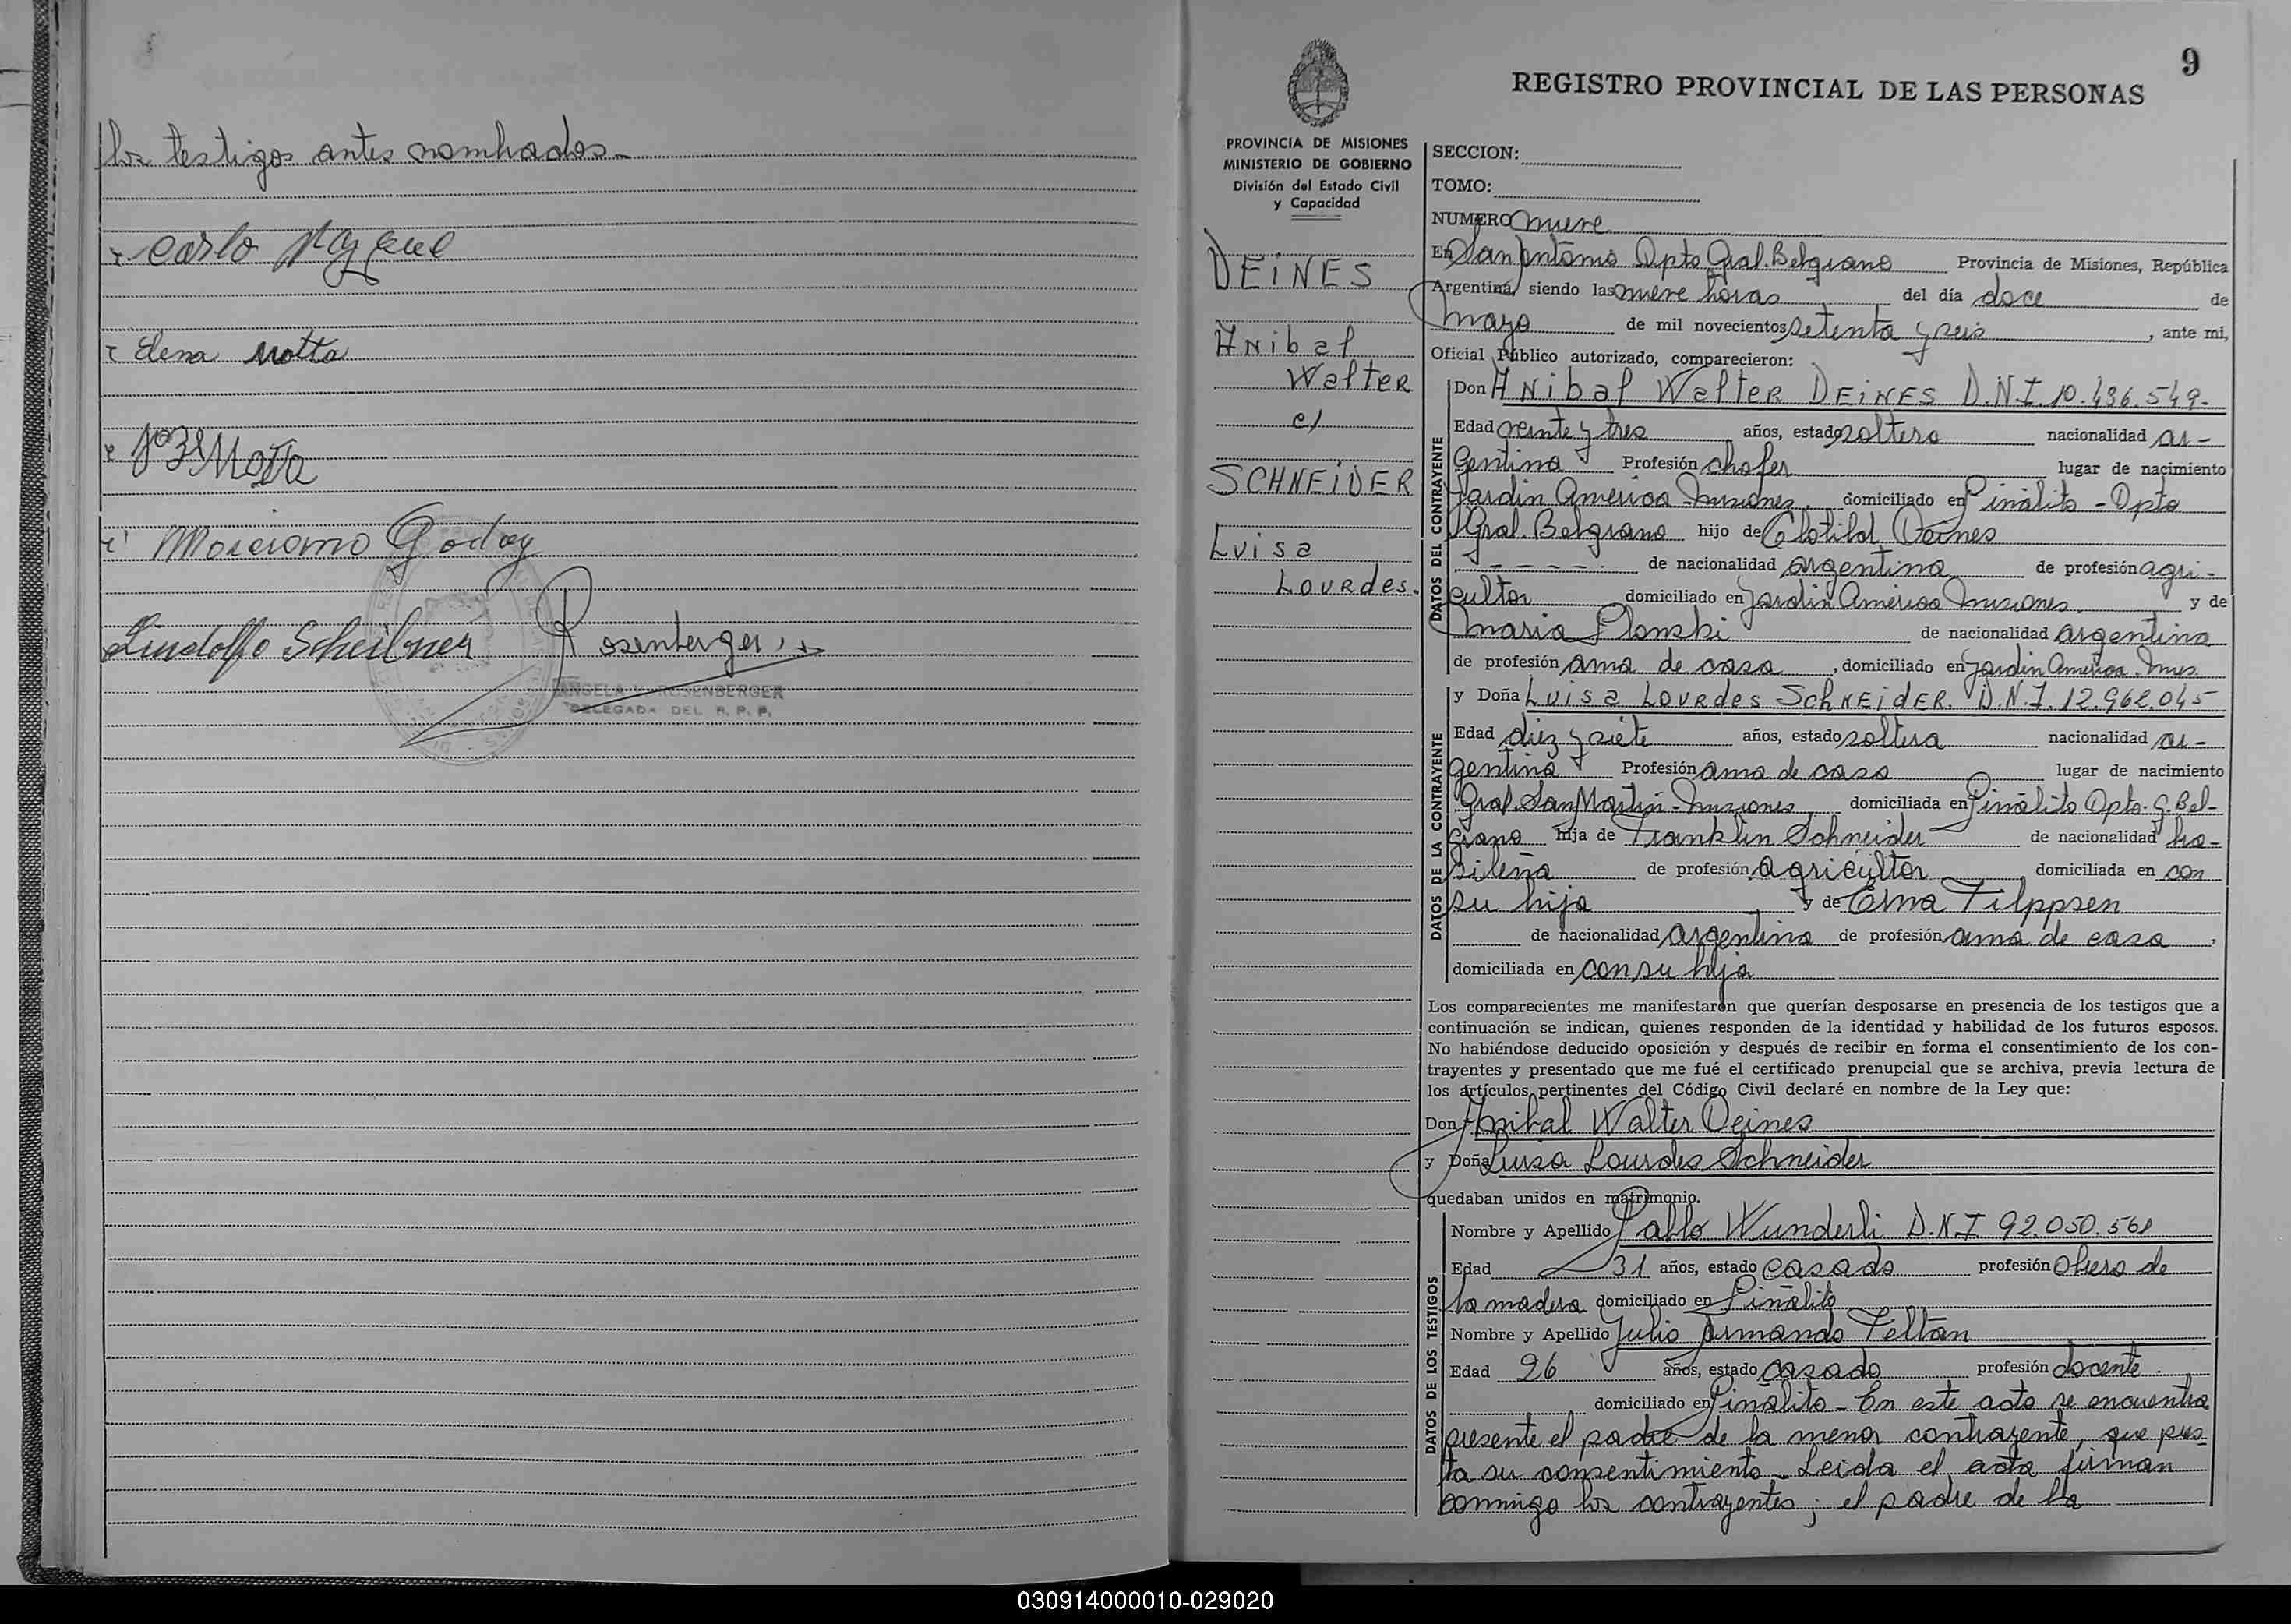 los testigos antes nombrados.
Carlo
Elena Motta
José Motta
Marciano Godoy
Lindolfo Scheibner Rosenberger
ANGELA V. ROSENBERGER
DELEGADA DEL R. P. P.
9
REGISTRO PROVINCIAL DE LAS PERSONAS
PROVINCIA DE MISIONES
MINISTERIO DE GOBIERNO
División del Estado Civil
y Capacidad
DEiNES
ANibal
Walter
c/
SCHNEiDER
Luisa
Lourdes.
SECCION:
TOMO:
NUMERO nueve
En San Antonio Dpto Gral. Belgrano Provincia de Misiones, República
Argentina, siendo las nueve horas del día doce de
mayo de mil novecientos setenta y seis, ante mi,
Oficial Público autorizado, comparecieron:
DATOS DEL CONTRAYENTE
Don ANibal Walter DEiNES D.N.I. 10.436.549.-
Edad veinte y tres años, estado soltero nacionalidad ar-
gentina Profesión chofer lugar de nacimiento
Jardin America Misiones. domiciliado en Piñalito - Dpto
Gral. Belgrano hijo de Clotild Deines
- - - - - - de nacionalidad argentina de profesión agri-
cultor domiciliado en Jardin America Misiones. y de
Maria Plonski de nacionalidad argentina
de profesión ama de casa, domiciliado en Jardin America. Mnes.
DATOS DE LA CONTRAYENTE
y Doña Luisa Lourdes SchNEidER. D.N.I. 12.962.045
Edad diez y siete años, estado soltera nacionalidad ar-
gentina Profesión ama de casa lugar de nacimiento
Gral. San Martin - Misiones domiciliada en Piñalito Dpto. G. Bel-
grano hija de Franklin Schneider de nacionalidad bra-
sileña de profesión agricultor domiciliada en con
su hija y de Erna Filppsen
de nacionalidad argentina de profesión ama de casa,
domiciliada en con su hija
Los comparecientes me manifestaron que querían desposarse en presencia de los testigos que a
continuación se indican, quienes responden de la identidad y habilidad de los futuros esposos.
No habiéndose deducido oposición y después de recibir en forma el consentimiento de los con-
trayentes y presentado que me fué el certificado prenupcial que se archiva, previa lectura de
los artículos pertinentes del Código Civil declaré en nombre de la Ley que:
Don Anibal Walter Deines
y Doña Luisa Lourdes Schneider
quedaban unidos en matrimonio.
DATOS DE LOS TESTIGOS
Nombre y Apellido Pablo Wunderli D.N.I 92.050.561
Edad 31 años, estado casado profesión obrero de
la madera domiciliado en Piñalito
Nombre y Apellido Julio Armando Feltan
Edad 26 años, estado casado profesión docente.
domiciliado en Piñalito - En este acto se encuentra
presente el padre de la menor contrayente, que pres-
ta su consentimiento - Leida el acta firman
conmigo los contrayentes; el padre de la
030914000010-029020